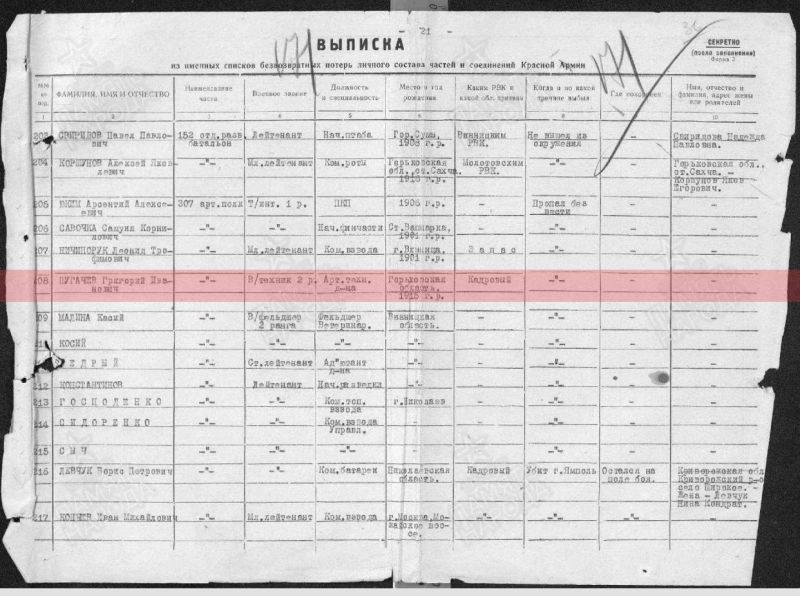 - 21 -
171
ВЫПИСКА
171
36
СЕКРЕТНО
(после заполнения)
Форма 2
из именных списков безвозвратных потерь личного состава частей и соединений Красной Армии
ФАМИЛИЯ, ИМЯ И ОТЧЕСТВО
Наименование части
Военное звание
Должность и специальность
Место и год рождения
Каким РВК и какой обл. призван
Когда и по какой причине выбыл
Где похоронен
Имя, отчество и фамилия, адрес жены или родителей
1 2 3 4 5 6 7 8 9 10
203 СВИРИДОВ Павел Павло- 152 отд.разв. Лейтенант Нач.штаба Гор.Сумы, Винницким Не вышел из — Свиридова Надежда
вич батальон 1908 г.р. РВК. окружения Павловна.
204 КОРШУНОВ Алексей Яков -"- Мл.лейтенант Ком.роты Горьковская Молотовским -"- — Горьковская обл.,
левич обл.,ст.Сахча. РВК. ст.Сахча. —
1918 г.р. Коршунов Яков
Егорович.
205 Арсентий Алексе- 307 арт.полк Т/инт. 1 р. 1906 г.р. — Пропал без — —
евич вести
206 САВОЧКА Самуил Корни- -"- — Нач.финчасти Ст.Вапнярка, — -"- — —
лович 1901 г.р.
207 НИЧИПОРУК Леонид Тро- -"- Мл.лейтенант Ком.взвода г.Винница, Запас -"- — —
фимович 1901 г.р.
208 ПУГАЧЕВ Григорий Ива- -"- В/техник 2 р. Арт.техн. Горьковская Кадровый -"- — —
нович д-на область.
1915 г.р.
209 МАДИНА Косий -"- В/фельдшер Фельдшер Винницкая — -"- — —
2 ранга Ветеринар. область.
КОСИЙ -"- -"- -"- -"- — -"- — —
ЕДРЫЙ -"- Ст.лейтенант Ад"ютант — — -"- — —
д-на
212 КОНСТАНТИНОВ -"- Лейтенант Нач.разведки — — -"- — —
213 ГОСПОДЕНКО -"- — Ком.топ. г.Николаев — -"- — —
взвода
214 СИДОРЕНКО -"- — Ком.взвода — — -"- — —
Управл.
215 СЫЧ -"- — -"- — — -"- — —
216 ЛЕВЧУК Борис Петрович -"- — Ком.батареи Николаевская Кадровый Убит г.Ямполь Остался на Криворожская обл
область. поле боя. Криворожский р-о
село Широкое. —
Жена — Левчук
Нина Кондрат.
217 Иван Михайлович -"- Мл.лейтенант Ком.взвода г.Москва,Мо- -"- -"- -"- —
жайское шос-
се.